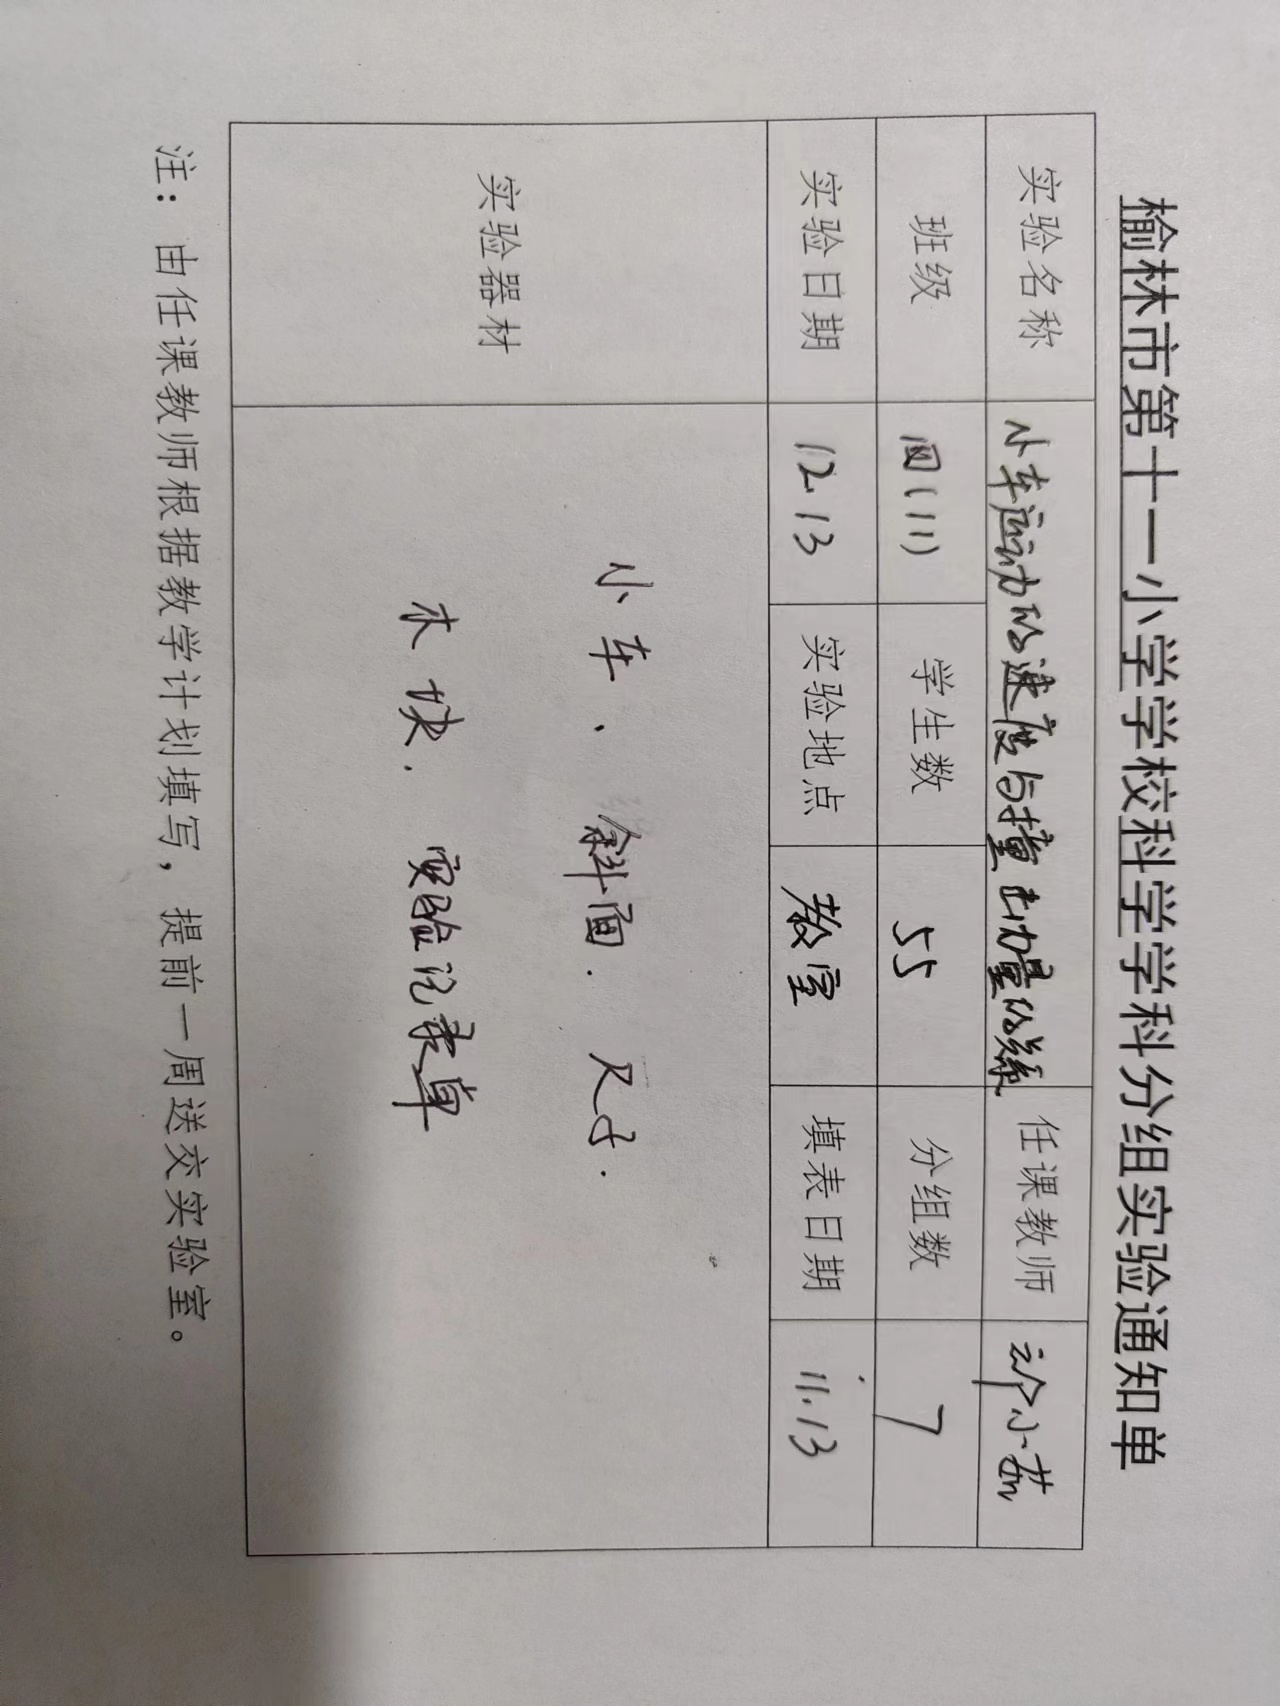 榆林市第十一小学学校科学学科分组实验通知单
实验名称 小车运动的速度与撞击力量的关系 任课教师 小茹
班级 四(11) 学生数 55 分组数 7
实验日期 12.13 实验地点 教室 填表日期 11.13
实验器材
小车、斜面. 尺子.
木块. 实验记录单
注：由任课教师根据教学计划填写，提前一周送交实验室。